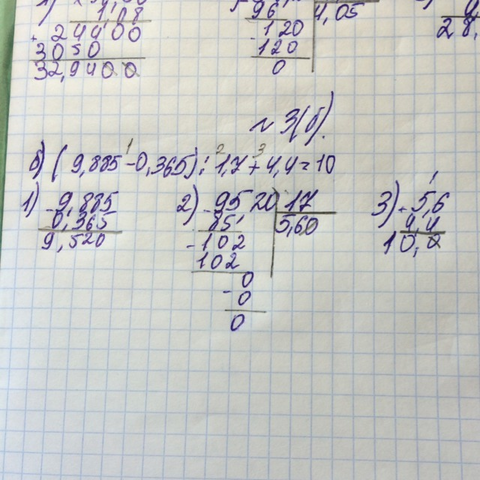 1,08
24400
3050
32,9400
96
120
120
0
4,05
28,
№ 3(б).
б) (9,885 - 0,365) : 1,7 + 4,4 = 10
1) - 9,885
0,365
9,520
2) - 9520 | 17
85 | 5,60
- 102
102
0
- 0
0
3) + 5,6
4,4
10,0